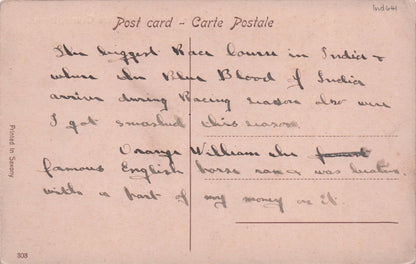 Ind641
Post card - Carte Postale
The biggest Race Course in India &
where the Blue Blood of India
arrive during Racing season also were
I got smashed this season
Orange William the
famous English horse was beaten
with a part of my money on it.
Printed in Saxony
303